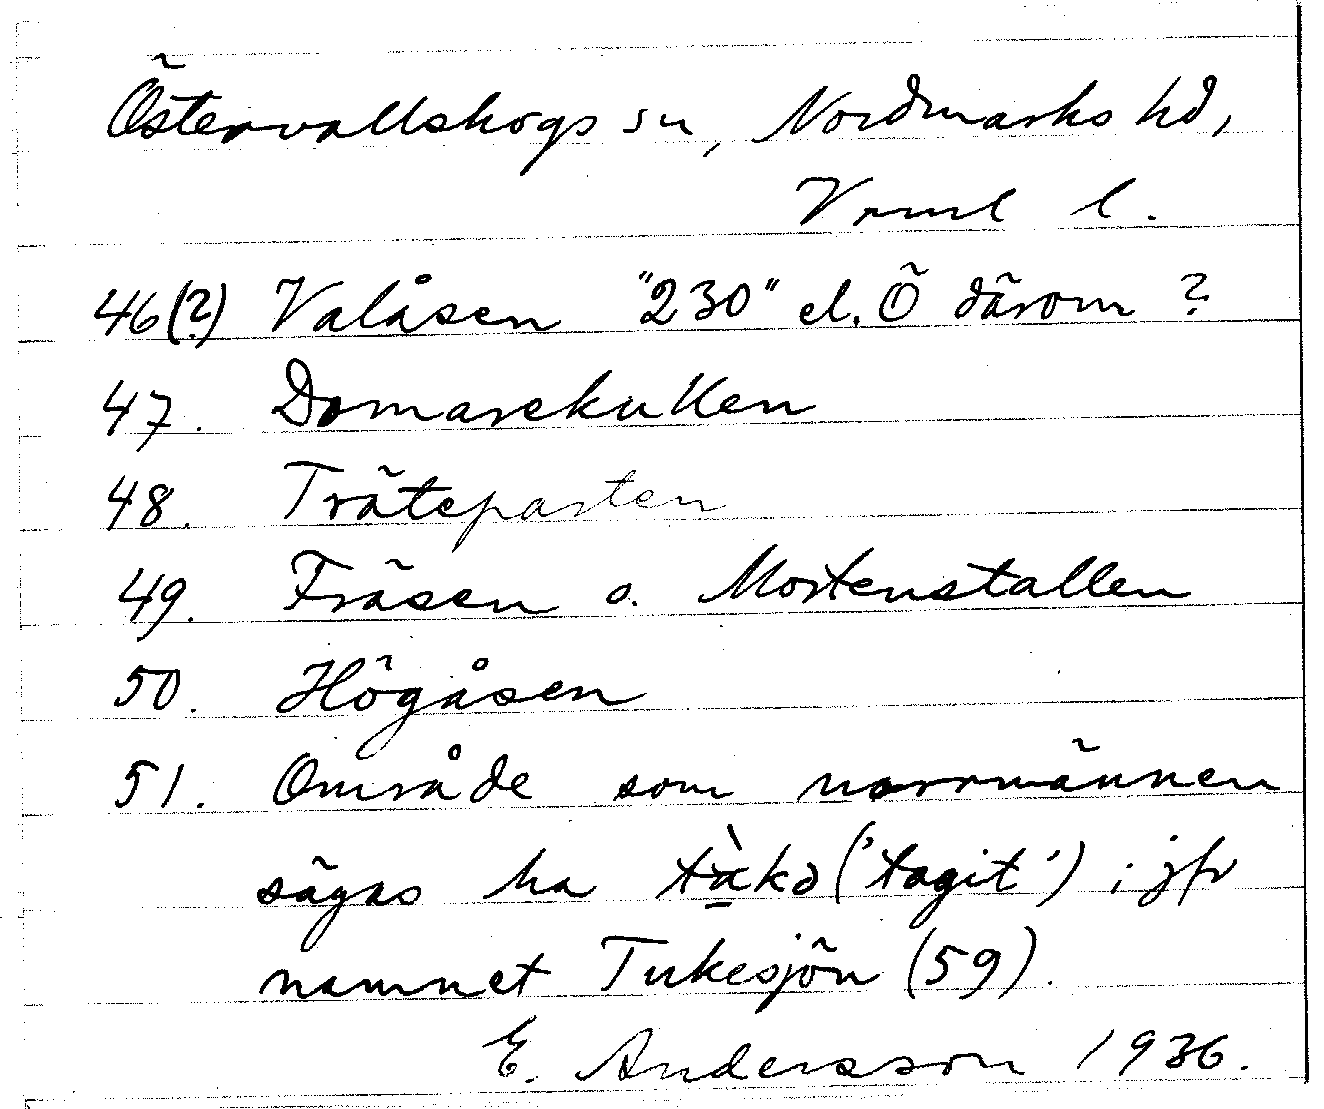 Östervallskogs sn, Nordmarks hd,
Vrml l.
46(?) Valåsen "230" el. Ö därom ?
47. Domarekullen
48. Träteparten
49. Fräsen o. Mortenstallen
50. Högåsen
51. Område som norrmännen
sägas ha tà̲kə ('tagit') ; jfr
namnet Tukesjön (59).
E. Andersson 1936.